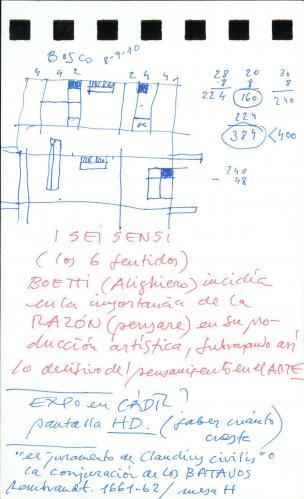 BOSCO 8-9-10
4 4 2 2 4 4
28 20 30
8 8 8
224 160 240
224
384 < 400
- 240
48
I SEI SENSI
(los 6 sentidos)
BOETTI (Alighiero) incidía
en la importancia de la
RAZÓN (pensare) en su pro-
ducción artística, subrayando así
lo decisivo del pensamiento en el ARTE
EXPO en CADIZ?
pantalla HD. (saber cuánto
cueste)
"el juramento de Claudius civilis" o
la conjuración de los BATAVOS
Rembrandt. 1661-62 / mesa H